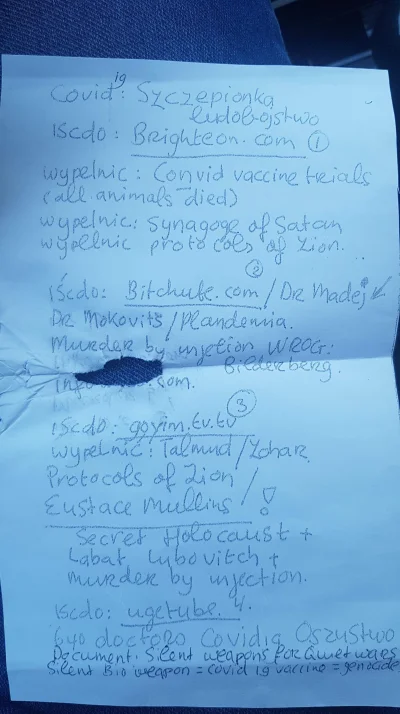 Covid ig: Szczepionka
ludobojstwo
iscdo: Brighteon.com 1
wypelnic: Convid vaccine trials
(all animals died)
wypelnic: Synagoge of Satan
wypelnic protocols of Zion.
2
iscdo: Bitchute.com / Dr Madej
Dr Mokovits / Plandemia.
Murder by injection WROG:
Bilderberg.
.com.
3
iscdo: goyim.tv.tv
wypelnic: Talmud / Zohar
Protocols of Zion /
Eustace Mullins / !
Secret Holocaust +
Labat Lubovitch +
murder by injection.
iscdo: ugetube. 4.
640 doctoro Covidig Oszustwo
Document: Silent weapons for Quiet wars
Silent Bio weapon = Covid ig vaccine = genocide